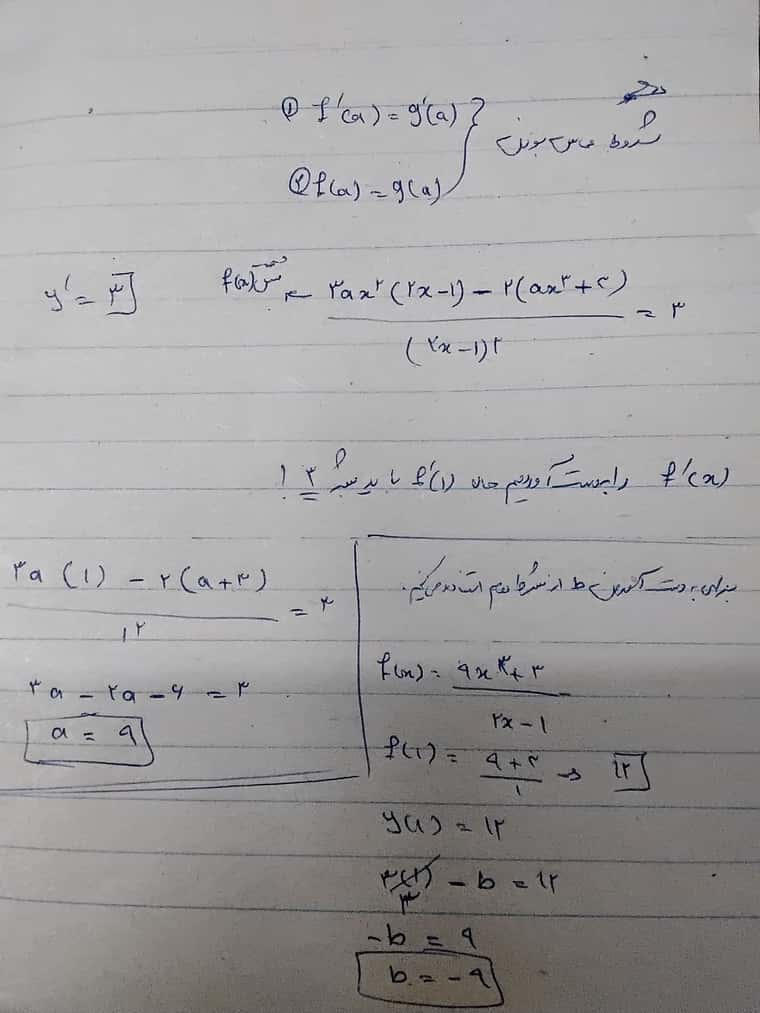 شروط مماس بودن
① f'(a) = g'(a)
② f(a) = g(a)
y' = ۳
f(a) مشتق ← ۳ax²(۲x-۱) - ۲(ax³+۳) / (۲x-۱)² = ۳
f'(x) را بدست آوردیم حال f'(۱) باید بشه ۳ !
۳a (۱) - ۲(a+۳) / ۱² = ۳
۳a - ۲a - ۶ = ۳
a = ۹
برای بدست آوردن b از شرط دوم استفاده می‌کنیم.
f(x) = ۹x³+۳ / ۲x-۱
f(۱) = ۹+۳ / ۱ → ۱۲
y(۱) = ۱۲
۳(۱) - b = ۱۲
۳
-b = ۹
b = -۹